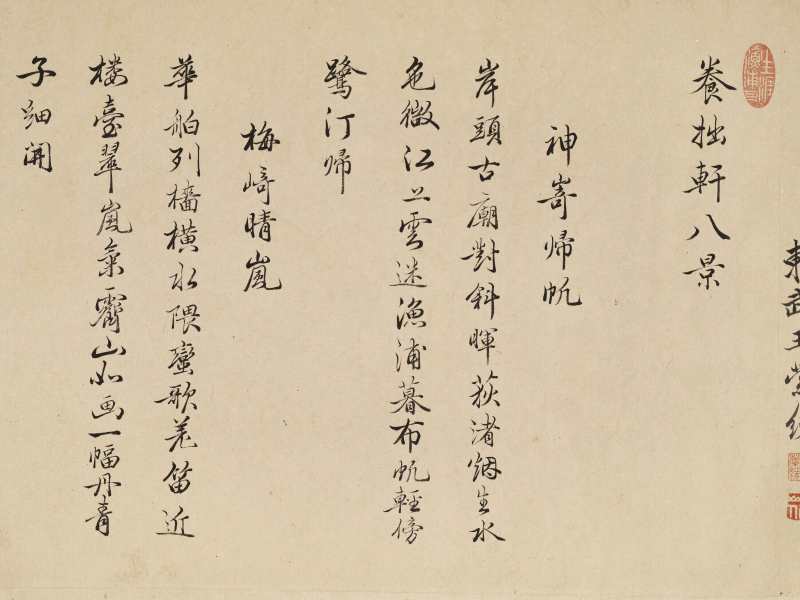 東武王
養拙軒八景
神嵜帰帆
岸頭古廟對斜暉荻渚烟生水
色微江上雲迷漁浦暮布帆輕傍
鷺汀帰
梅﨑晴嵐
華舶列檣橫水隈蠻歌羌笛近
樓臺翠嵐氣霽山如画一幅丹青
子細開